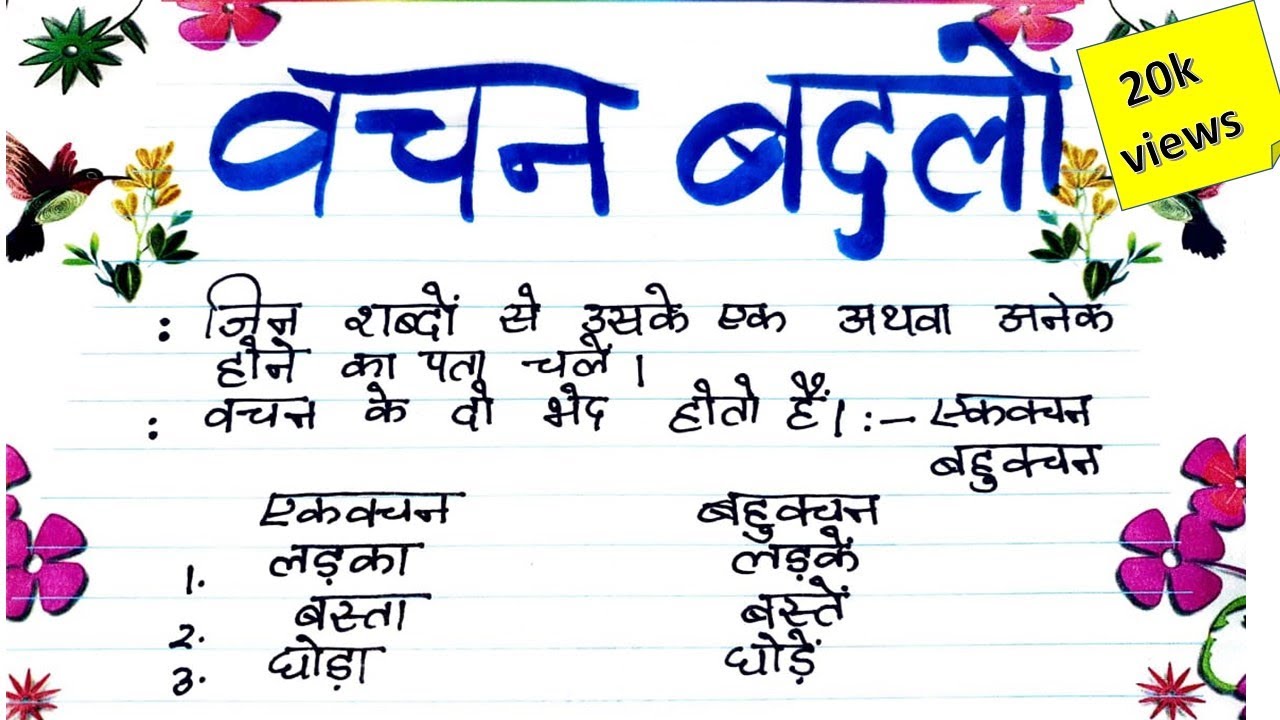 वचन बदलो
20k
views
: जिन शब्दों से उसके एक अथवा अनेक
होने का पता चलें।
: वचन के दो भेद होतो हैं। :- एकवचन
बहुवचन
एकवचन बहुवचन
1. लड़का लड़कें
2. बस्ता बस्तें
3. घोड़ा घोड़ें